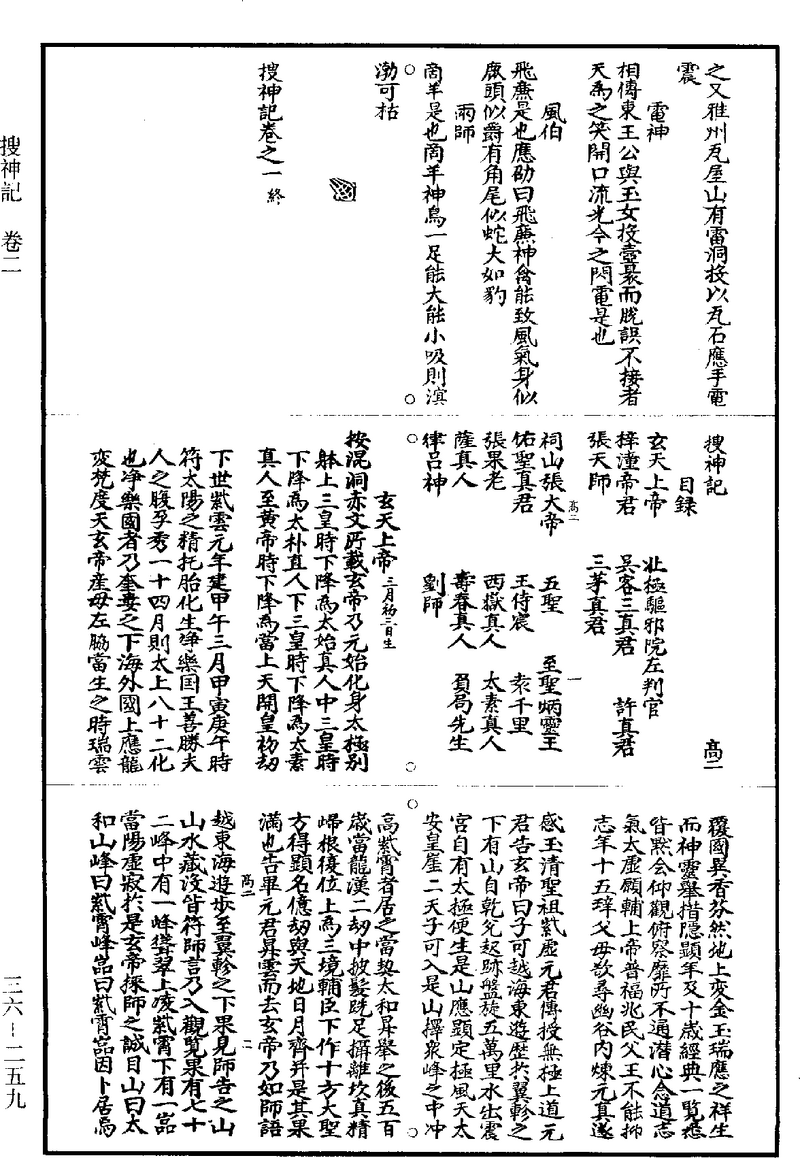 之又雅州瓦屋山有雷洞投以瓦石應手電
震
電神
相傳東王公與玉女投壺梟而脫誤不接者
天為之笑開口流光今之閃電是也
風伯
飛廉是也應劭曰飛廉神禽能致風氣身似
鹿頭似爵有角尾似蛇大如豹
雨師
商羊是也商羊神鳥一足能大能小吸則溟
渤可枯
搜神記卷之一終
搜神記
目錄
高二
玄天上帝 北極驅邪院左判官
梓潼帝君 吳客三真君 許真君
張天師 三茅真君
祠山張大帝 五聖 至聖炳靈王
佑聖真君 王侍宸 袁千里
張果老 西嶽真人 太素真人
薩真人 壽春真人 負局先生
律呂神 劉師
高二 一
玄天上帝 三月初三日生
按混洞赤文所載玄帝乃元始化身太極別
躰上三皇時下降為太始真人中三皇時
下降為太朴真人下三皇時下降為太素
真人至黃帝時下降為當上天開皇初劫
下世紫雲元年建甲午三月甲寅庚午時
符太陽之精托胎化生淨樂国王善勝夫
人之腹孕秀一十四月則太上八十二化
也净樂國者乃奎婁之下海外國上應龍
变梵度天玄帝產母左脇當生之時瑞雲
覆國異香芬然地上变金玉瑞應之祥生
而神靈舉措隱顯年及十歲經典一覽悉
皆默会仰觀俯察靡所不通潛心念道志
氣太虛願輔上帝普福兆民父王不能抑
志年十五辝父母欲尋幽谷内煉元真遂
感玉清聖祖紫虛元君傳授無極上道元
君告玄帝曰子可越海東遊歷於翼軫之
下有山自乾兊起跡盤旋五萬里水出震
宮自有太極便生是山應顯定極風天太
安皇崖二天子可入是山擇衆峰之中冲
高紫霄者居之當契太和昇舉之後五百
歲當龍漢二劫中披髮跣足攝離坎真精
歸根復位上為三境輔臣下作十方大聖
方得顯名億劫與天地日月齊并是其果
滿也告畢元君昇雲而去玄帝乃如師語
高二 二
越東海遊步至翼軫之下果見師告之山
山水藏沒皆符師言乃入觀覽果有七十
二峰中有一峰聳翠上凌紫霄下有一嵓
當陽虛寂於是玄帝採師之誠目山曰太
和山峰曰紫霄峰嵓曰紫霄嵓因卜居焉
搜神記 卷二
三六－二五九